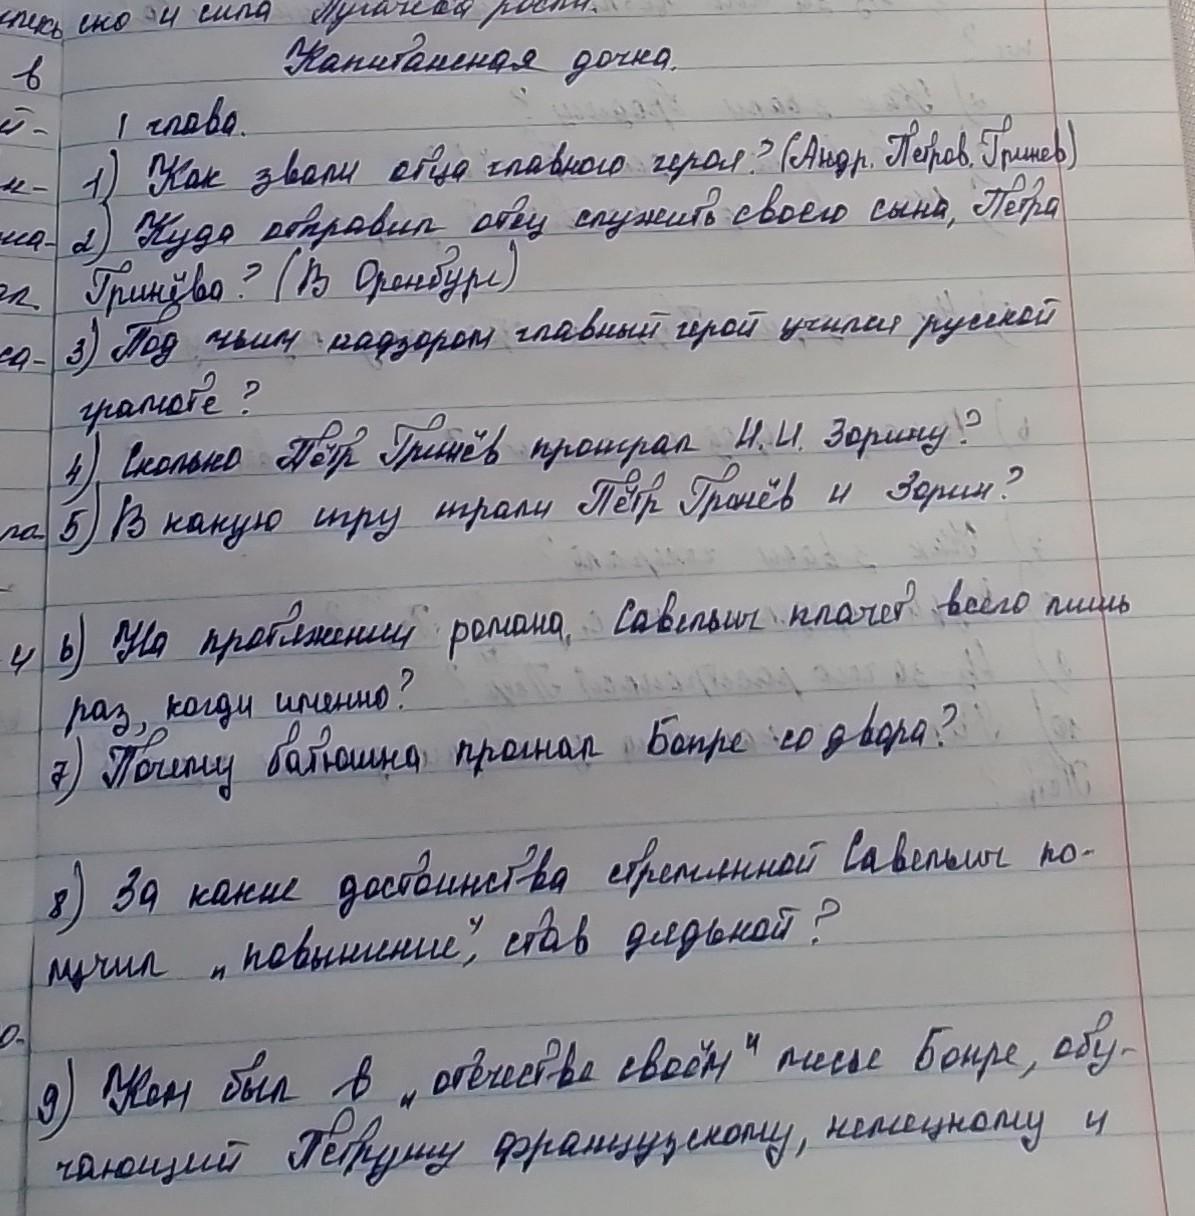 сно и сила Пугачёва росли.
Капитанская дочка.
в
1 глава.
й-
1) Как звали отца главного героя? (Андр. Петров. Гринёв)
2) Куда отправил отец служить своего сына, Петра
Гринёва? (В Оренбург)
3) Под чьим надзором главный герой учился русской
са-
грамоте?
4) Сколько Пётр Гринёв проиграл И.И. Зорину?
5) В какую игру играли Пётр Гринёв и Зорин?
и
6) На протяжении романа, Савельич плачет всего лишь
раз, когда именно?
7) Почему батюшка прогнал Бопре со двора?
8) За какие достоинства стремянной Савельич по-
лучил „повышение", став дядькой?
9) Кем был в „отечестве своём" мосье Бопре, обу-
чающий Петрушу французскому, немецкому и